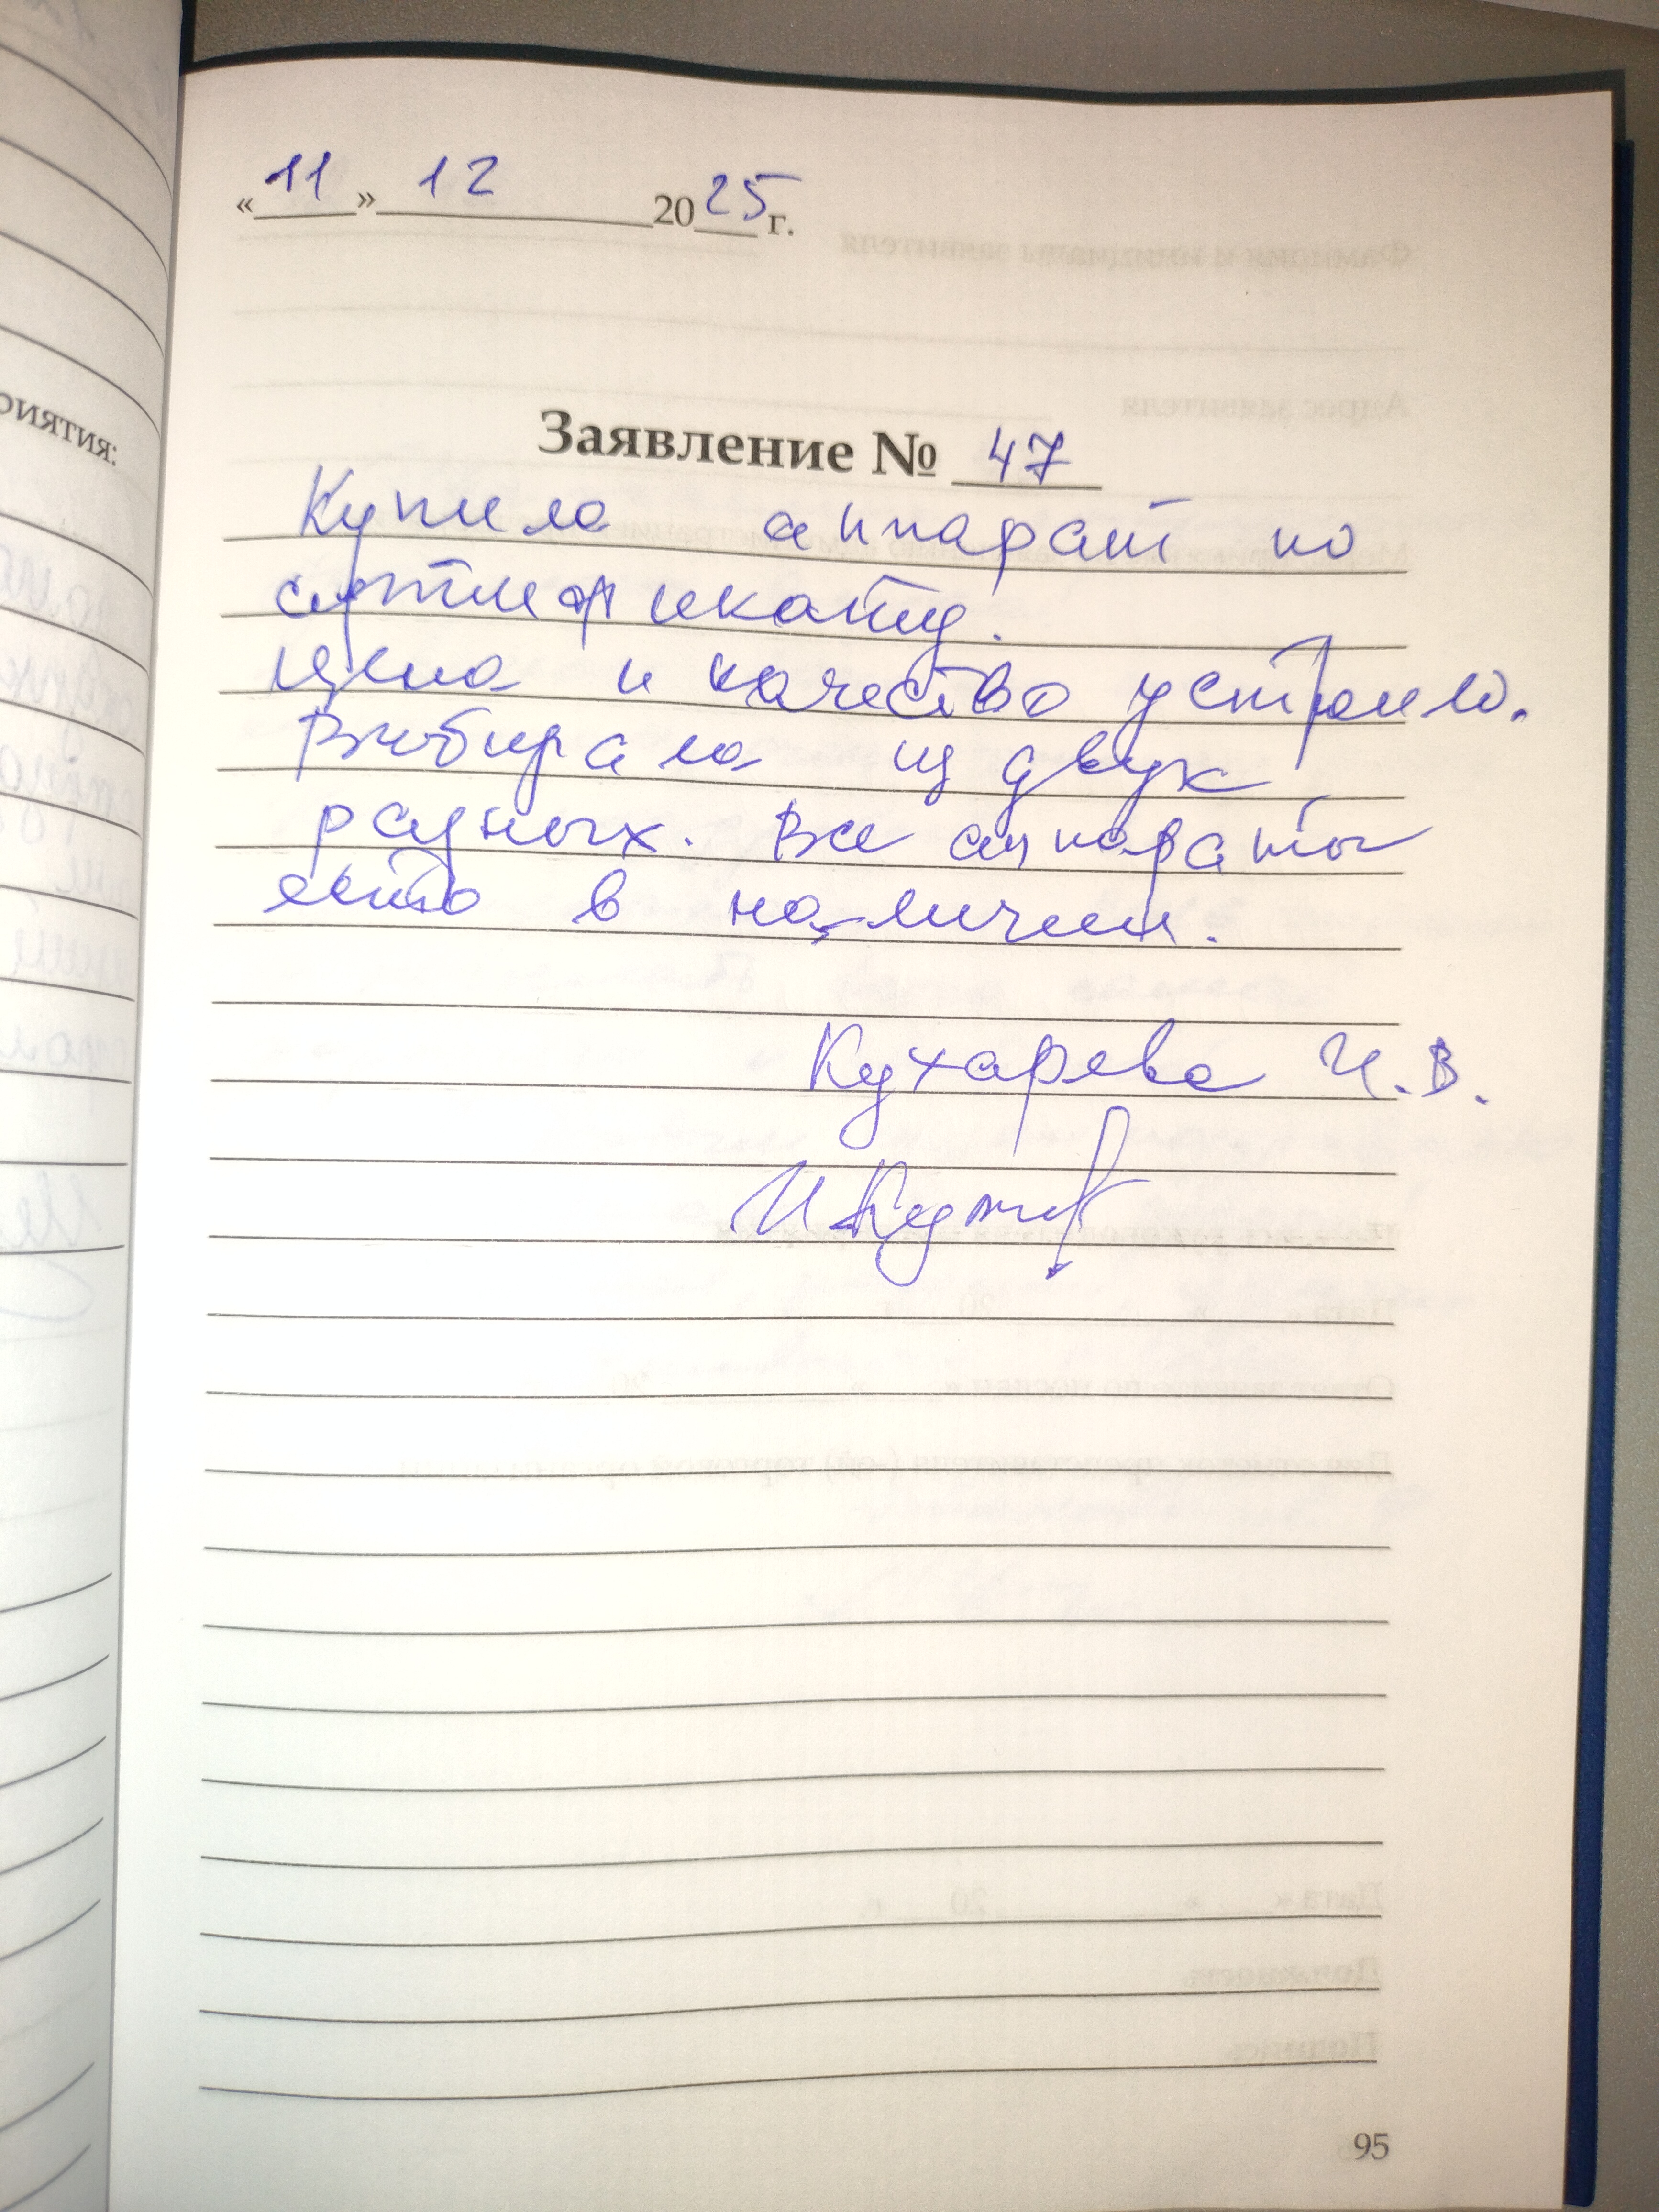 «11» 12 2025 г.
Заявление № 47
Купила аппарат по
сертификату.
Цена и качество устроило.
Выбирала из двух
разных. Все аппараты
есть в наличии.
Кухарева И.В.
риятия:
95